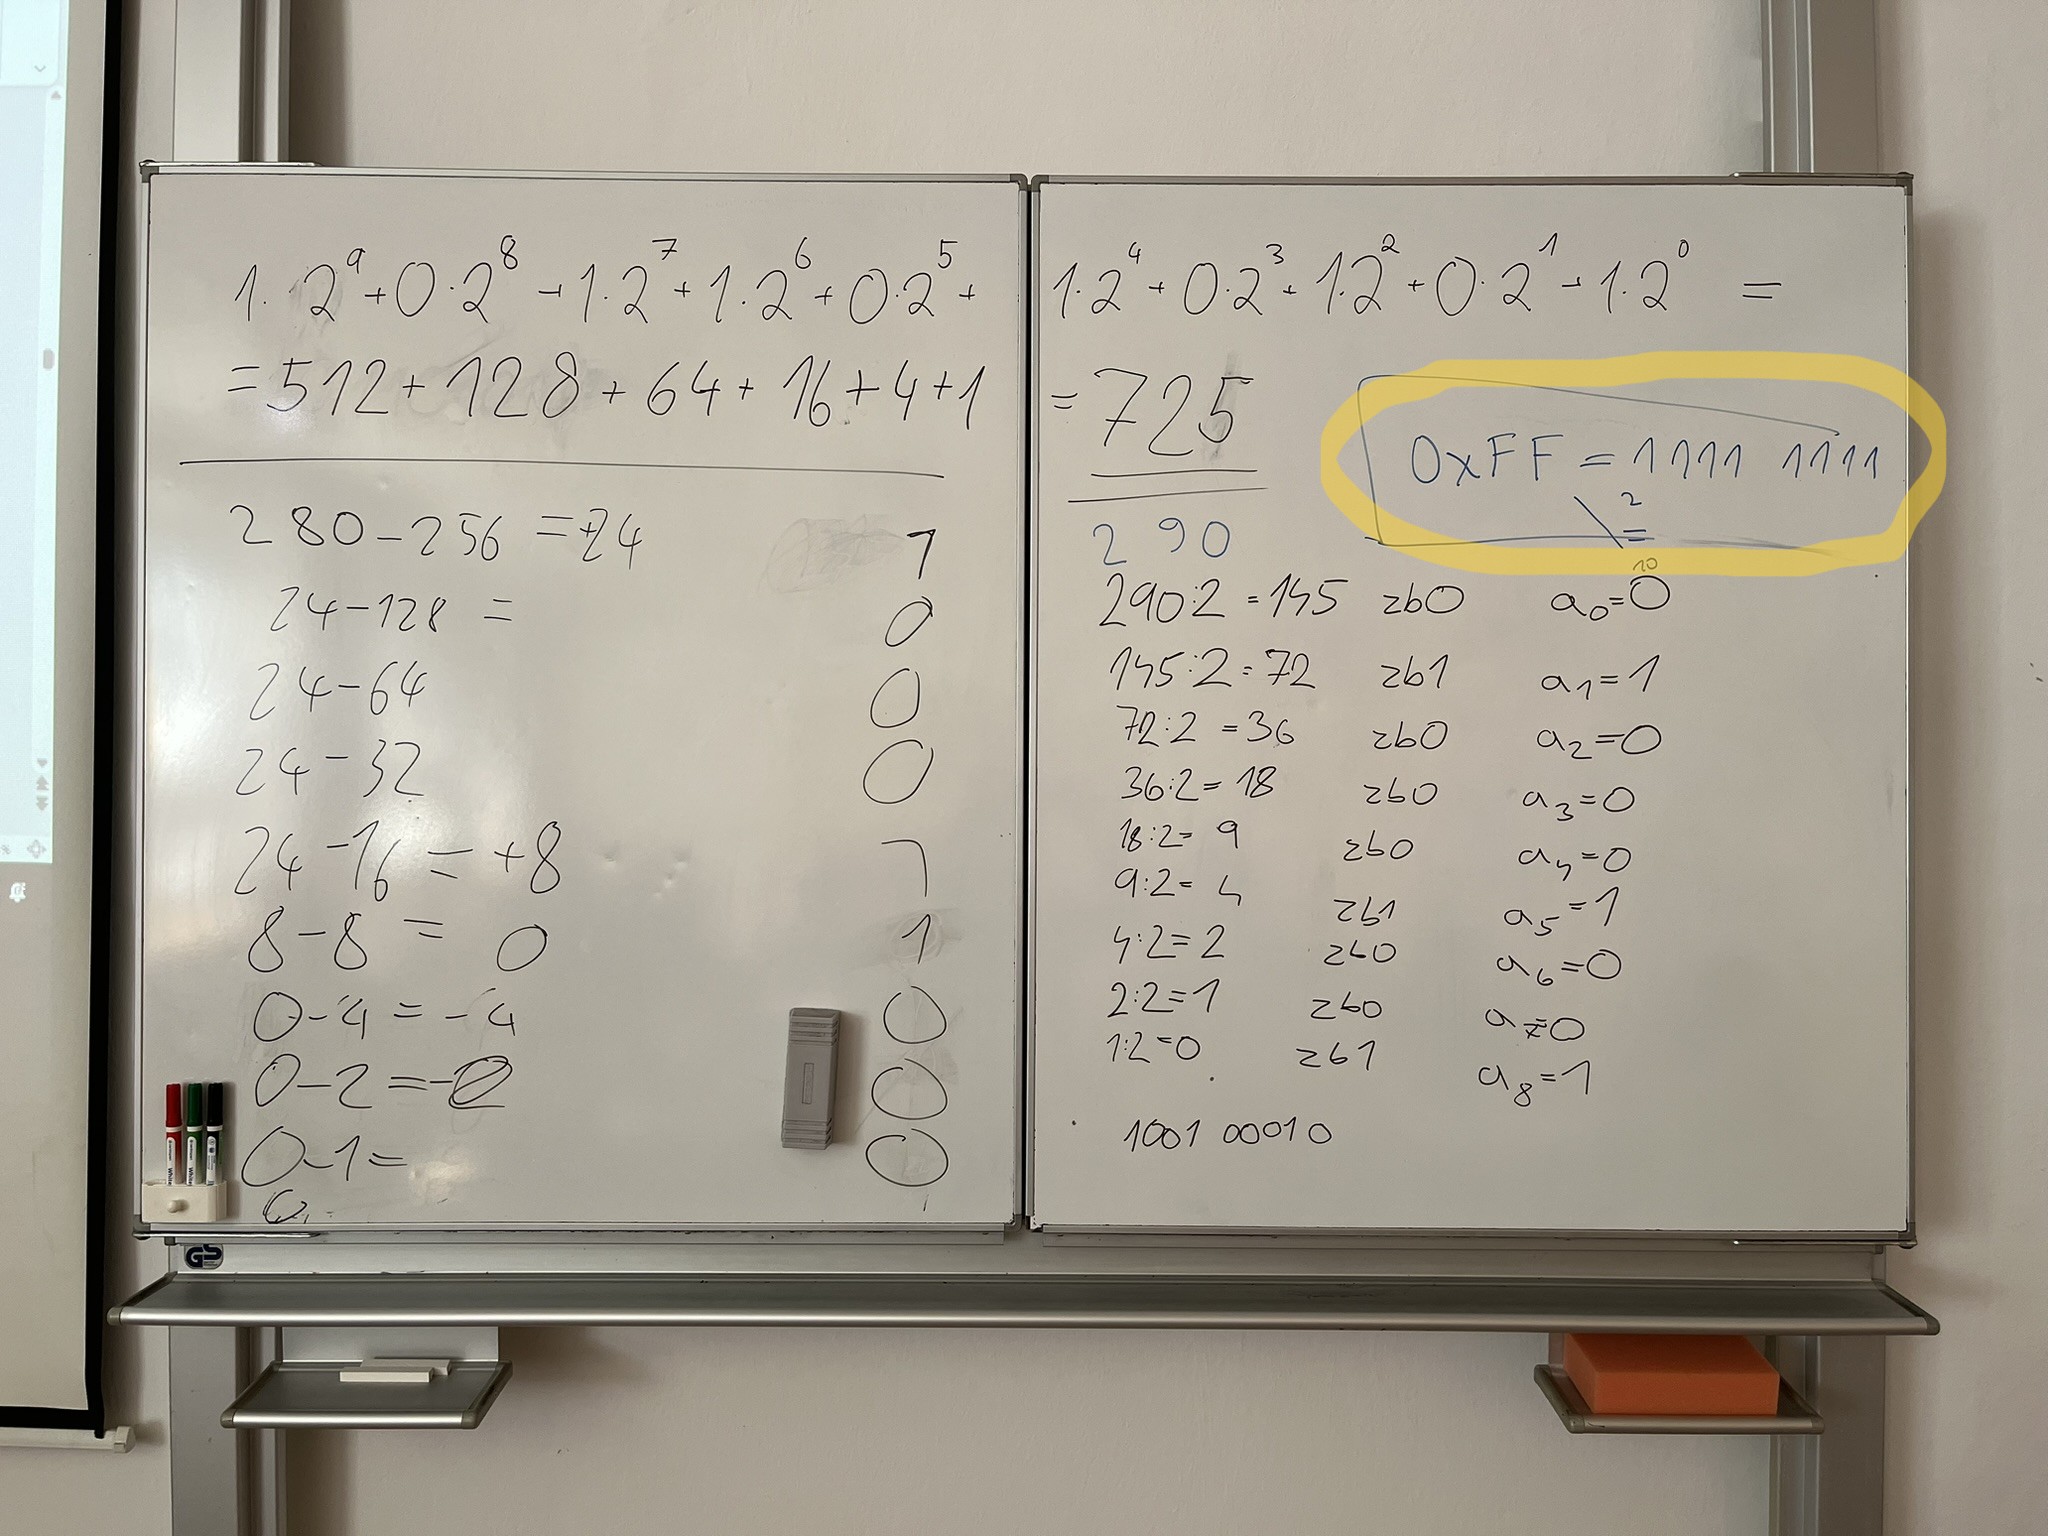 1·2⁹+0·2⁸+1·2⁷+1·2⁶+0·2⁵+
=512+128+64+16+4+1
280-256=+24 1
24-128= 0
24-64 0
24-32 0
24-16=+8 1
8-8=0 1
0-4=-4 0
0-2=-2 0
0-1= 0
1·2⁴+0·2³+1·2²+0·2¹+1·2⁰=
=725
0xFF=1111 1111
2
=
10
290
290:2=145 zb0 a₀=0
145:2=72 zb1 a₁=1
72:2=36 zb0 a₂=0
36:2=18 zb0 a₃=0
18:2=9 zb0 a₄=0
9:2=4 zb1 a₅=1
4:2=2 zb0 a₆=0
2:2=1 zb0 a₇=0
1:2=0 zb1 a₈=1
1001 00010
GS